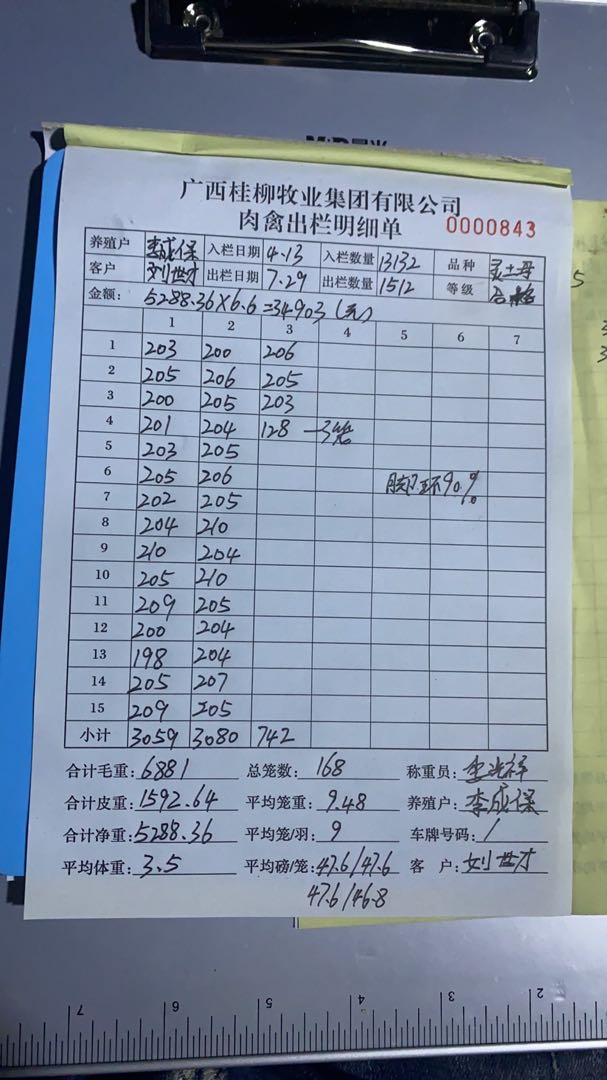 广西桂柳牧业集团有限公司
肉禽出栏明细单 0000843
养殖户 李成保 入栏日期 4.13 入栏数量 13132 品种
客户 刘世才 出栏日期 7.29 出栏数量 1512 等级 合格
金额: 5288.36×6.6=34903(元)
1 2 3 4 5 6 7
1 203 200 206
2 205 206 205
3 200 205 203
4 201 204 128 —3笼
5 203 205
6 205 206 脚环90%
7 202 205
8 204 210
9 210 204
10 205 210
11 209 205
12 200 204
13 198 204
14 205 207
15 209 205
小计 3059 3080 742
合计毛重: 6881 总笼数: 168 称重员:
合计皮重: 1592.64 平均笼重: 9.48 养殖户: 李成保
合计净重: 5288.36 平均笼/羽: 9 车牌号码: /
平均体重: 3.5 平均磅/笼: 47.6/47.6 客户: 刘世才
47.6/46.8
7 6 5 4 3 2